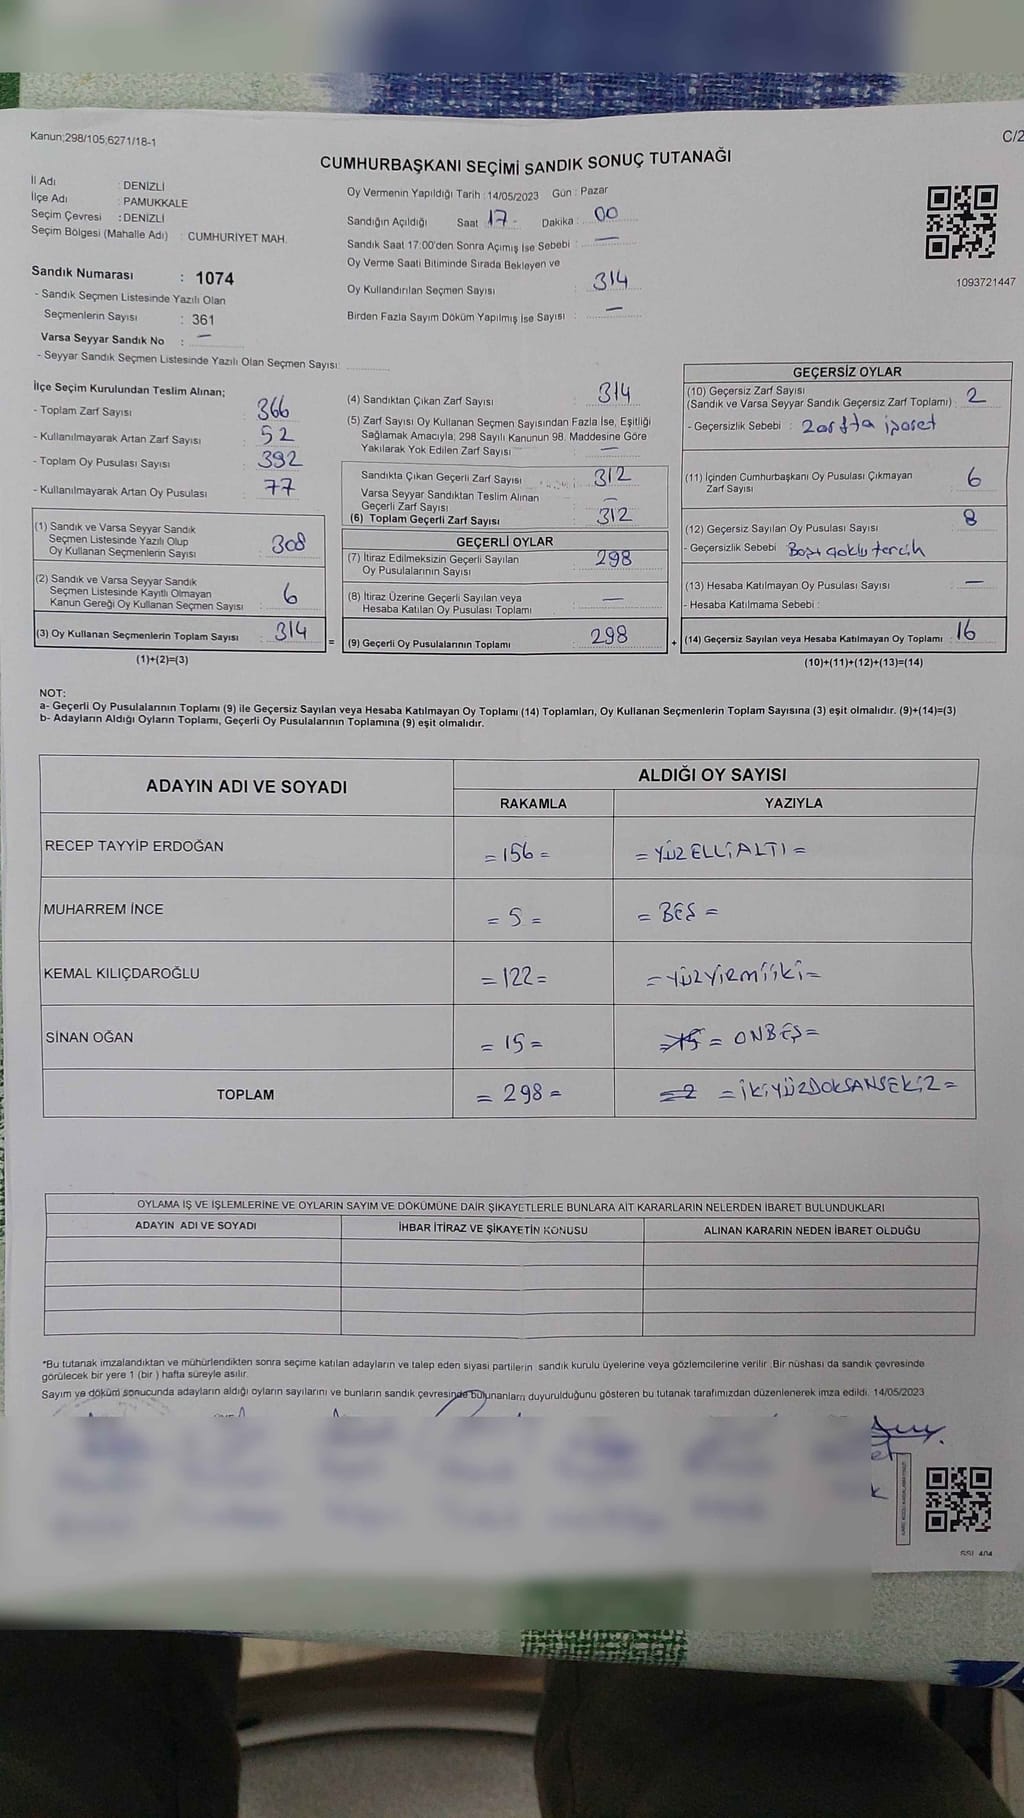 Kanun;298/105;6271/18-1
C/2
CUMHURBAŞKANI SEÇİMİ SANDIK SONUÇ TUTANAĞI
İl Adı : DENİZLİ
İlçe Adı : PAMUKKALE
Seçim Çevresi : DENİZLİ
Seçim Bölgesi (Mahalle Adı) : CUMHURİYET MAH.
Sandık Numarası : 1074
- Sandık Seçmen Listesinde Yazılı Olan
Seçmenlerin Sayısı : 361
Varsa Seyyar Sandık No : —
- Seyyar Sandık Seçmen Listesinde Yazılı Olan Seçmen Sayısı:
Oy Vermenin Yapıldığı Tarih : 14/05/2023 Gün : Pazar
Sandığın Açıldığı Saat 17 Dakika : 00
Sandık Saat 17:00'den Sonra Açımış İse Sebebi : —
Oy Verme Saati Bitiminde Sırada Bekleyen ve
Oy Kullandırılan Seçmen Sayısı : 314
Birden Fazla Sayım Döküm Yapılmış İse Sayısı : —
1093721447
İlçe Seçim Kurulundan Teslim Alınan;
- Toplam Zarf Sayısı : 366
- Kullanılmayarak Artan Zarf Sayısı : 52
- Toplam Oy Pusulası Sayısı : 392
- Kullanılmayarak Artan Oy Pusulası : 77
(1) Sandık ve Varsa Seyyar Sandık
Seçmen Listesinde Yazılı Olup
Oy Kullanan Seçmenlerin Sayısı : 308
(2) Sandık ve Varsa Seyyar Sandık
Seçmen Listesinde Kayıtlı Olmayan
Kanun Gereği Oy Kullanan Seçmen Sayısı : 6
(3) Oy Kullanan Seçmenlerin Toplam Sayısı : 314
(1)+(2)=(3)
=
(4) Sandıktan Çıkan Zarf Sayısı : 314
(5) Zarf Sayısı Oy Kullanan Seçmen Sayısından Fazla İse, Eşitliği
Sağlamak Amacıyla; 298 Sayılı Kanunun 98. Maddesine Göre
Yakılarak Yok Edilen Zarf Sayısı : —
Sandıkta Çıkan Geçerli Zarf Sayısı : 312
Varsa Seyyar Sandıktan Teslim Alınan
Geçerli Zarf Sayısı : —
(6) Toplam Geçerli Zarf Sayısı : 312
GEÇERLİ OYLAR
(7) İtiraz Edilmeksizin Geçerli Sayılan
Oy Pusulalarının Sayısı : 298
(8) İtiraz Üzerine Geçerli Sayılan veya
Hesaba Katılan Oy Pusulası Toplamı : —
(9) Geçerli Oy Pusulalarının Toplamı : 298
+
GEÇERSİZ OYLAR
(10) Geçersiz Zarf Sayısı
(Sandık ve Varsa Seyyar Sandık Geçersiz Zarf Toplamı) : 2
- Geçersizlik Sebebi : zarfta işaret
(11) İçinden Cumhurbaşkanı Oy Pusulası Çıkmayan
Zarf Sayısı : 6
(12) Geçersiz Sayılan Oy Pusulası Sayısı : 8
- Geçersizlik Sebebi : Boş çoklu tercih
(13) Hesaba Katılmayan Oy Pusulası Sayısı : —
- Hesaba Katılmama Sebebi :
(14) Geçersiz Sayılan veya Hesaba Katılmayan Oy Toplamı : 16
(10)+(11)+(12)+(13)=(14)
NOT:
a- Geçerli Oy Pusulalarının Toplamı (9) ile Geçersiz Sayılan veya Hesaba Katılmayan Oy Toplamı (14) Toplamları, Oy Kullanan Seçmenlerin Toplam Sayısına (3) eşit olmalıdır. (9)+(14)=(3)
b- Adayların Aldığı Oyların Toplamı, Geçerli Oy Pusulalarının Toplamına (9) eşit olmalıdır.
ADAYIN ADI VE SOYADI ALDIĞI OY SAYISI
RAKAMLA YAZIYLA
RECEP TAYYİP ERDOĞAN = 156 = = YÜZELLİALTI =
MUHARREM İNCE = 5 = = BEŞ =
KEMAL KILIÇDAROĞLU = 122 = = YÜZYİRMİİKİ =
SİNAN OĞAN = 15 = = ONBEŞ =
TOPLAM = 298 = = İKİYÜZDOKSANSEKİZ =
OYLAMA İŞ VE İŞLEMLERİNE VE OYLARIN SAYIM VE DÖKÜMÜNE DAİR ŞİKAYETLERLE BUNLARA AİT KARARLARIN NELERDEN İBARET BULUNDUKLARI
ADAYIN ADI VE SOYADI İHBAR İTİRAZ VE ŞİKAYETİN KONUSU ALINAN KARARIN NEDEN İBARET OLDUĞU
*Bu tutanak imzalandıktan ve mühürlendikten sonra seçime katılan adayların ve talep eden siyasi partilerin sandık kurulu üyelerine veya gözlemcilerine verilir .Bir nüshası da sandık çevresinde
görülecek bir yere 1 (bir ) hafta süreyle asılır.
Sayım ve döküm sonucunda adayların aldığı oyların sayılarını ve bunların sandık çevresinde bulunanları duyurulduğunu gösteren bu tutanak tarafımızdan düzenlenerek imza edildi. 14/05/2023